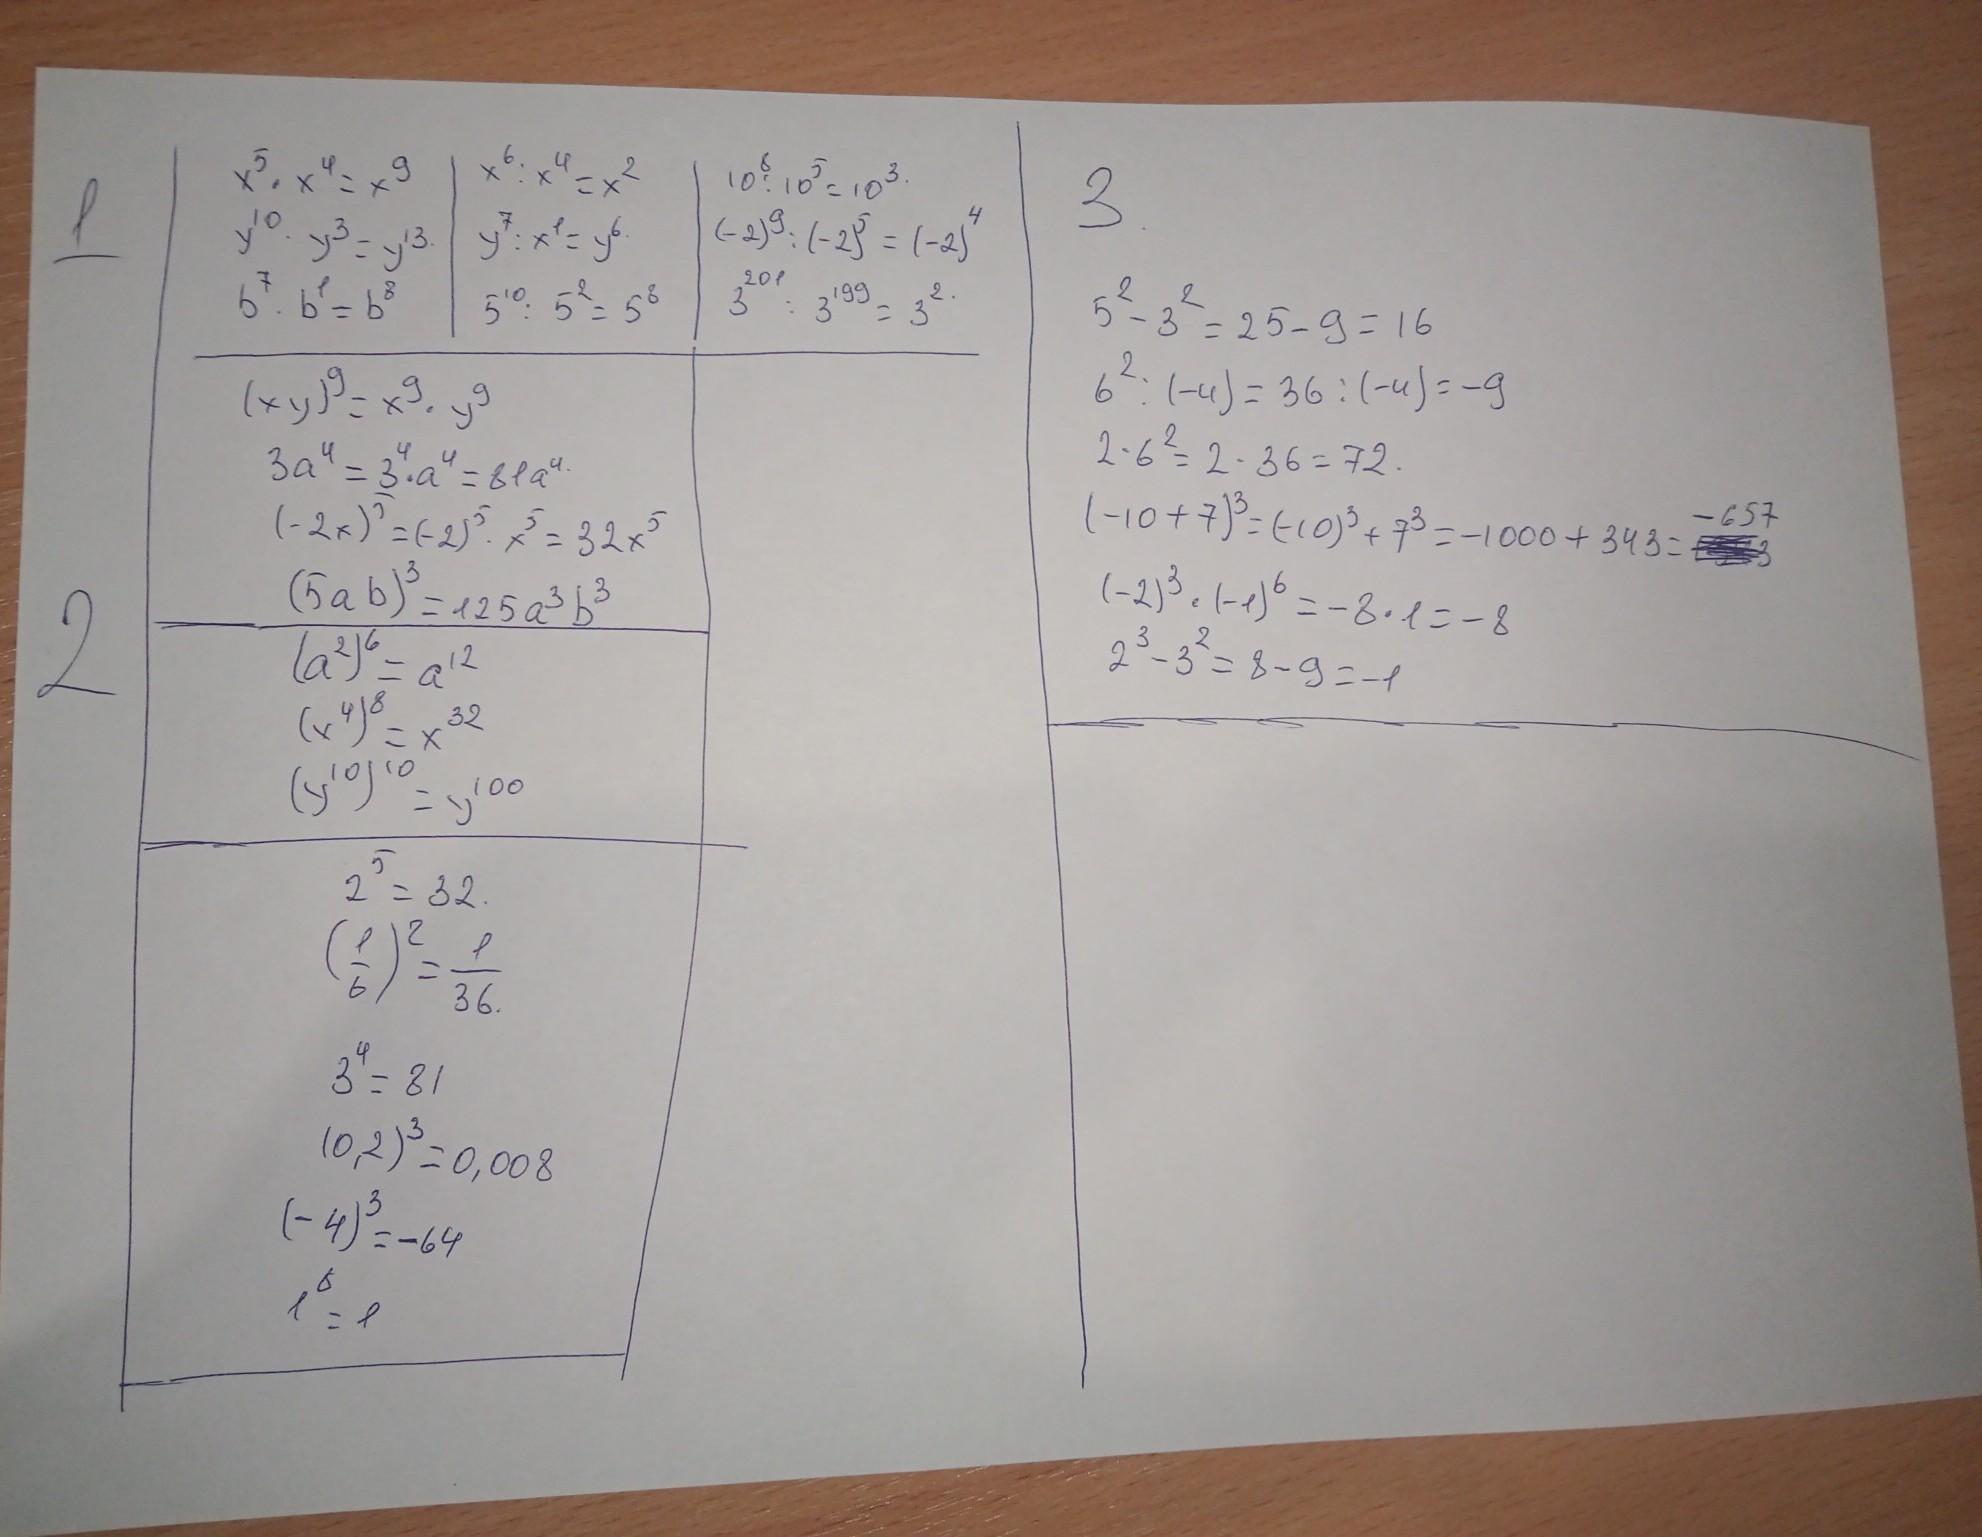 1
x⁵ · x⁴ = x⁹
y¹⁰ · y³ = y¹³.
b⁷ · b¹ = b⁸
x⁶ : x⁴ = x²
y⁷ : x¹ = y⁶.
5¹⁰ : 5² = 5⁸
10⁸ : 10⁵ = 10³.
(-2)⁹ : (-2)⁵ = (-2)⁴
3²⁰¹ : 3¹⁹⁹ = 3².
2
(xy)⁹ = x⁹ · y⁹
3a⁴ = 3⁴ · a⁴ = 81a⁴.
(-2x)⁵ = (-2)⁵ · x⁵ = 32x⁵
(5ab)³ = 125a³b³
(a²)⁶ = a¹²
(x⁴)⁸ = x³²
(y¹⁰)¹⁰ = y¹⁰⁰
2⁵ = 32.
(1/6)² = 1/36.
3⁴ = 81
(0,2)³ = 0,008
(-4)³ = -64
1⁶ = 1
3.
5² - 3² = 25 - 9 = 16
6² : (-4) = 36 : (-4) = -9
2 · 6² = 2 · 36 = 72.
(-10 + 7)³ = (-10)³ + 7³ = -1000 + 343 = -657
(-2)³ · (-1)⁶ = -8 · 1 = -8
2³ - 3² = 8 - 9 = -1